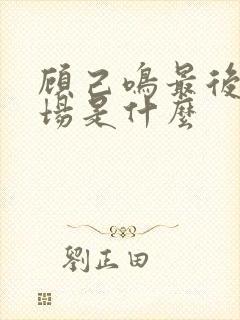 顾己鳴最後
場是什麼
劉正田